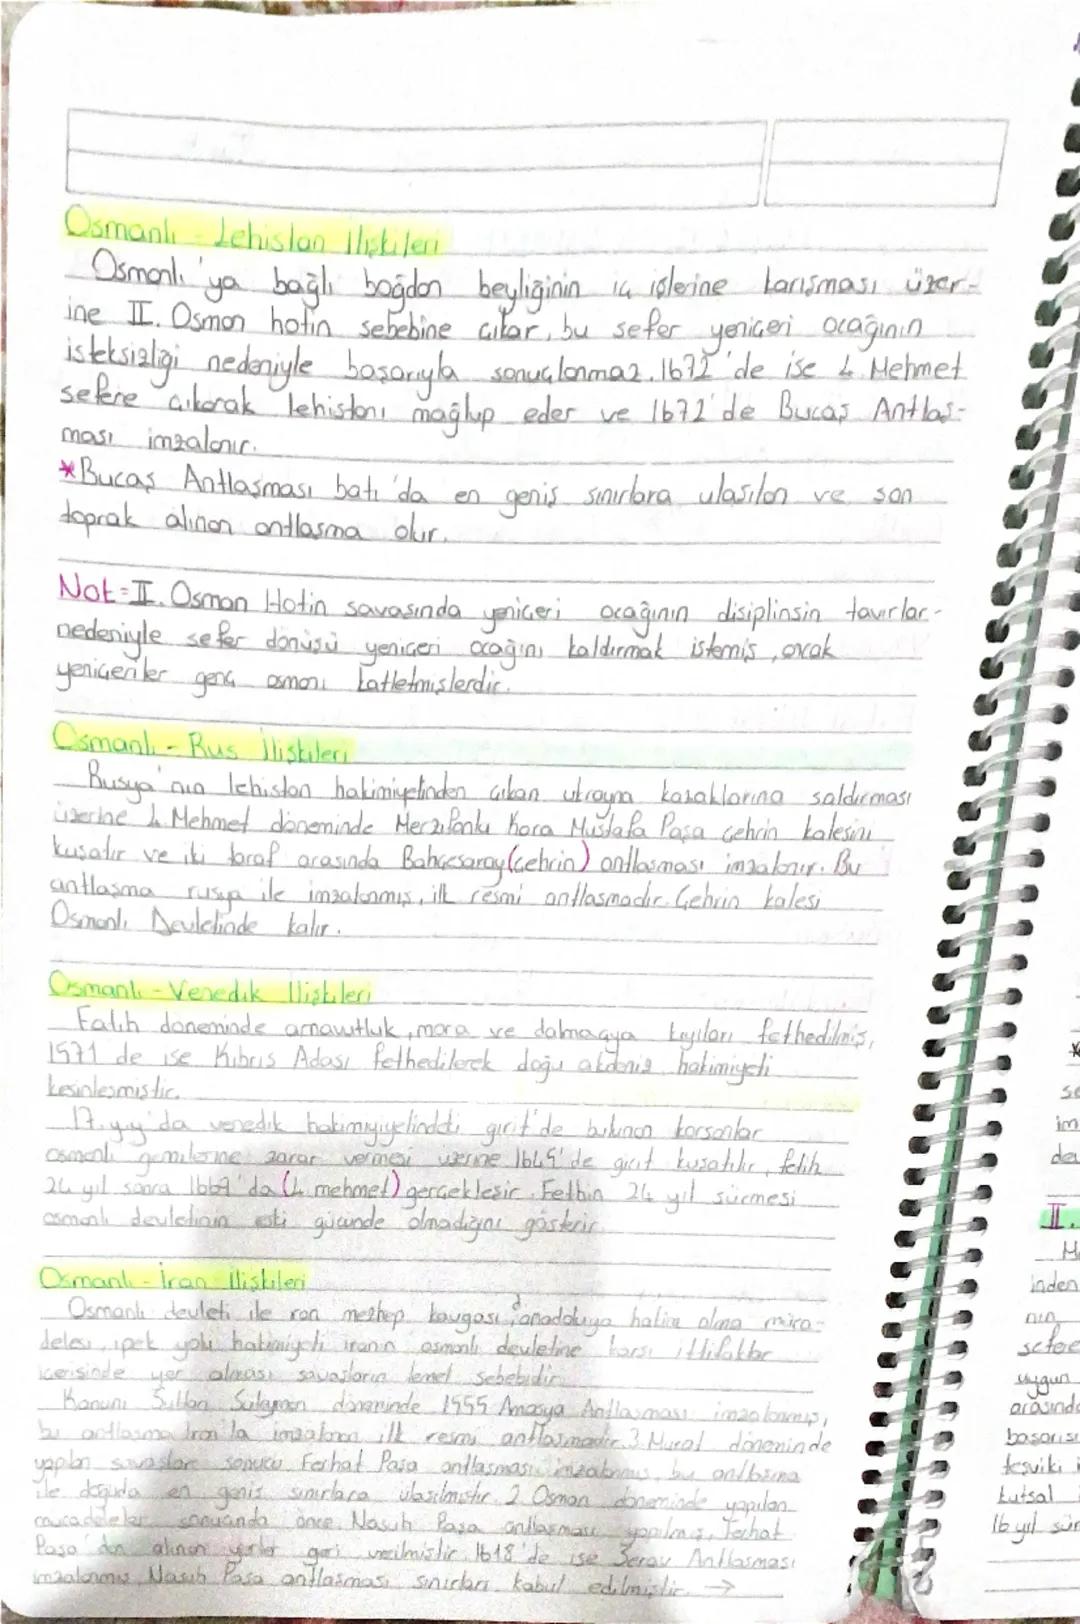 Osmanlı - Lehistan İlişkileri
Osmanlı'ya bağlı boğdan beyliğinin iç işlerine karışması üzer-
ine II. Osman hotin sebebine çıkar, bu sefer yeniçeri ocağının
isteksizliği nedeniyle başarıyla sonuçlanmaz. 1672'de ise 4. Mehmet
sefere çıkarak lehistanı mağlup eder ve 1672'de Bucaş Antlaş-
ması imzalanır.
*Bucaş Antlaşması batı'da en geniş sınırlara ulaşılan ve son
toprak alınan antlaşma olur.
Not=II. Osman Hotin savaşında yeniçeri ocağının disiplinsin tavırlar-
nedeniyle sefer dönüşü yeniçeri ocağını kaldırmak istemiş, ancak
yeniçeriler genç osmanı katletmişlerdir.
Osmanlı - Rus İlişkileri
Rusya'nın lehistan hakimiyetinden çıkan ukrayna kazaklarına saldırması
üzerine 4. Mehmet döneminde Merzifonlu Kara Mustafa Paşa çehrin kalesini
kuşatır ve iki taraf arasında Bahçesaray (Çehrin) antlaşması imzalanır. Bu
antlaşma rusya ile imzalanmış, ilk resmi antlaşmadır. Çehrin kalesi
Osmanlı Devletinde kalır.
Osmanlı - Venedik İlişkileri
Fatih döneminde arnavutluk, mora ve dalmaçya kıyıları fethedilmiş,
1571'de ise Kıbrıs Adası fethedilerek doğu akdeniz hakimiyeti
kesinleşmiştir.
17. yy'da venedik hakimiyetindeki girit'de bulunan korsanlar
osmanlı gemilerine zarar vermesi üzerine 1645'de girit kuşatılır, fetih
24 yıl sonra 1669'da (4. mehmet) gerçekleşir. Fethin 24 yıl sürmesi
osmanlı devletinin eski gücünde olmadığını gösterir.
Osmanlı - İran İlişkileri
Osmanlı devleti ile ran mezhep kavgası, anadoluya hakim olma müca-
delesi, ipek yolu hakimiyeti iranın osmanlı devletine karşı ittifaklar
içerisinde yer alması savaşların temel sebebidir.
Kanuni Sultan Süleyman döneminde 1555 Amasya Antlaşması imzalanmış,
bu antlaşma İran'la imzalanan ilk resmi antlaşmadır. 3. Murat döneminde
yapılan savaşlar sonucu Ferhat Paşa antlaşması imzalanmış, bu antlaşma
ile doğuda en geniş sınırlara ulaşılmıştır. 2. Osman döneminde yapılan
mücadeleler sonucunda önce Nasuh Paşa antlaşması yapılmış, Ferhat
Paşa'dan alınan yerler geri verilmiştir. 1618'de ise Serav Antlaşması
imzalanmış Nasuh Paşa antlaşması sınırları kabul edilmiştir. →
se
im
dev
II.
inden
nın
sefere
uygun
arasında
başarısı
teşviki
kutsal
16 yıl sür